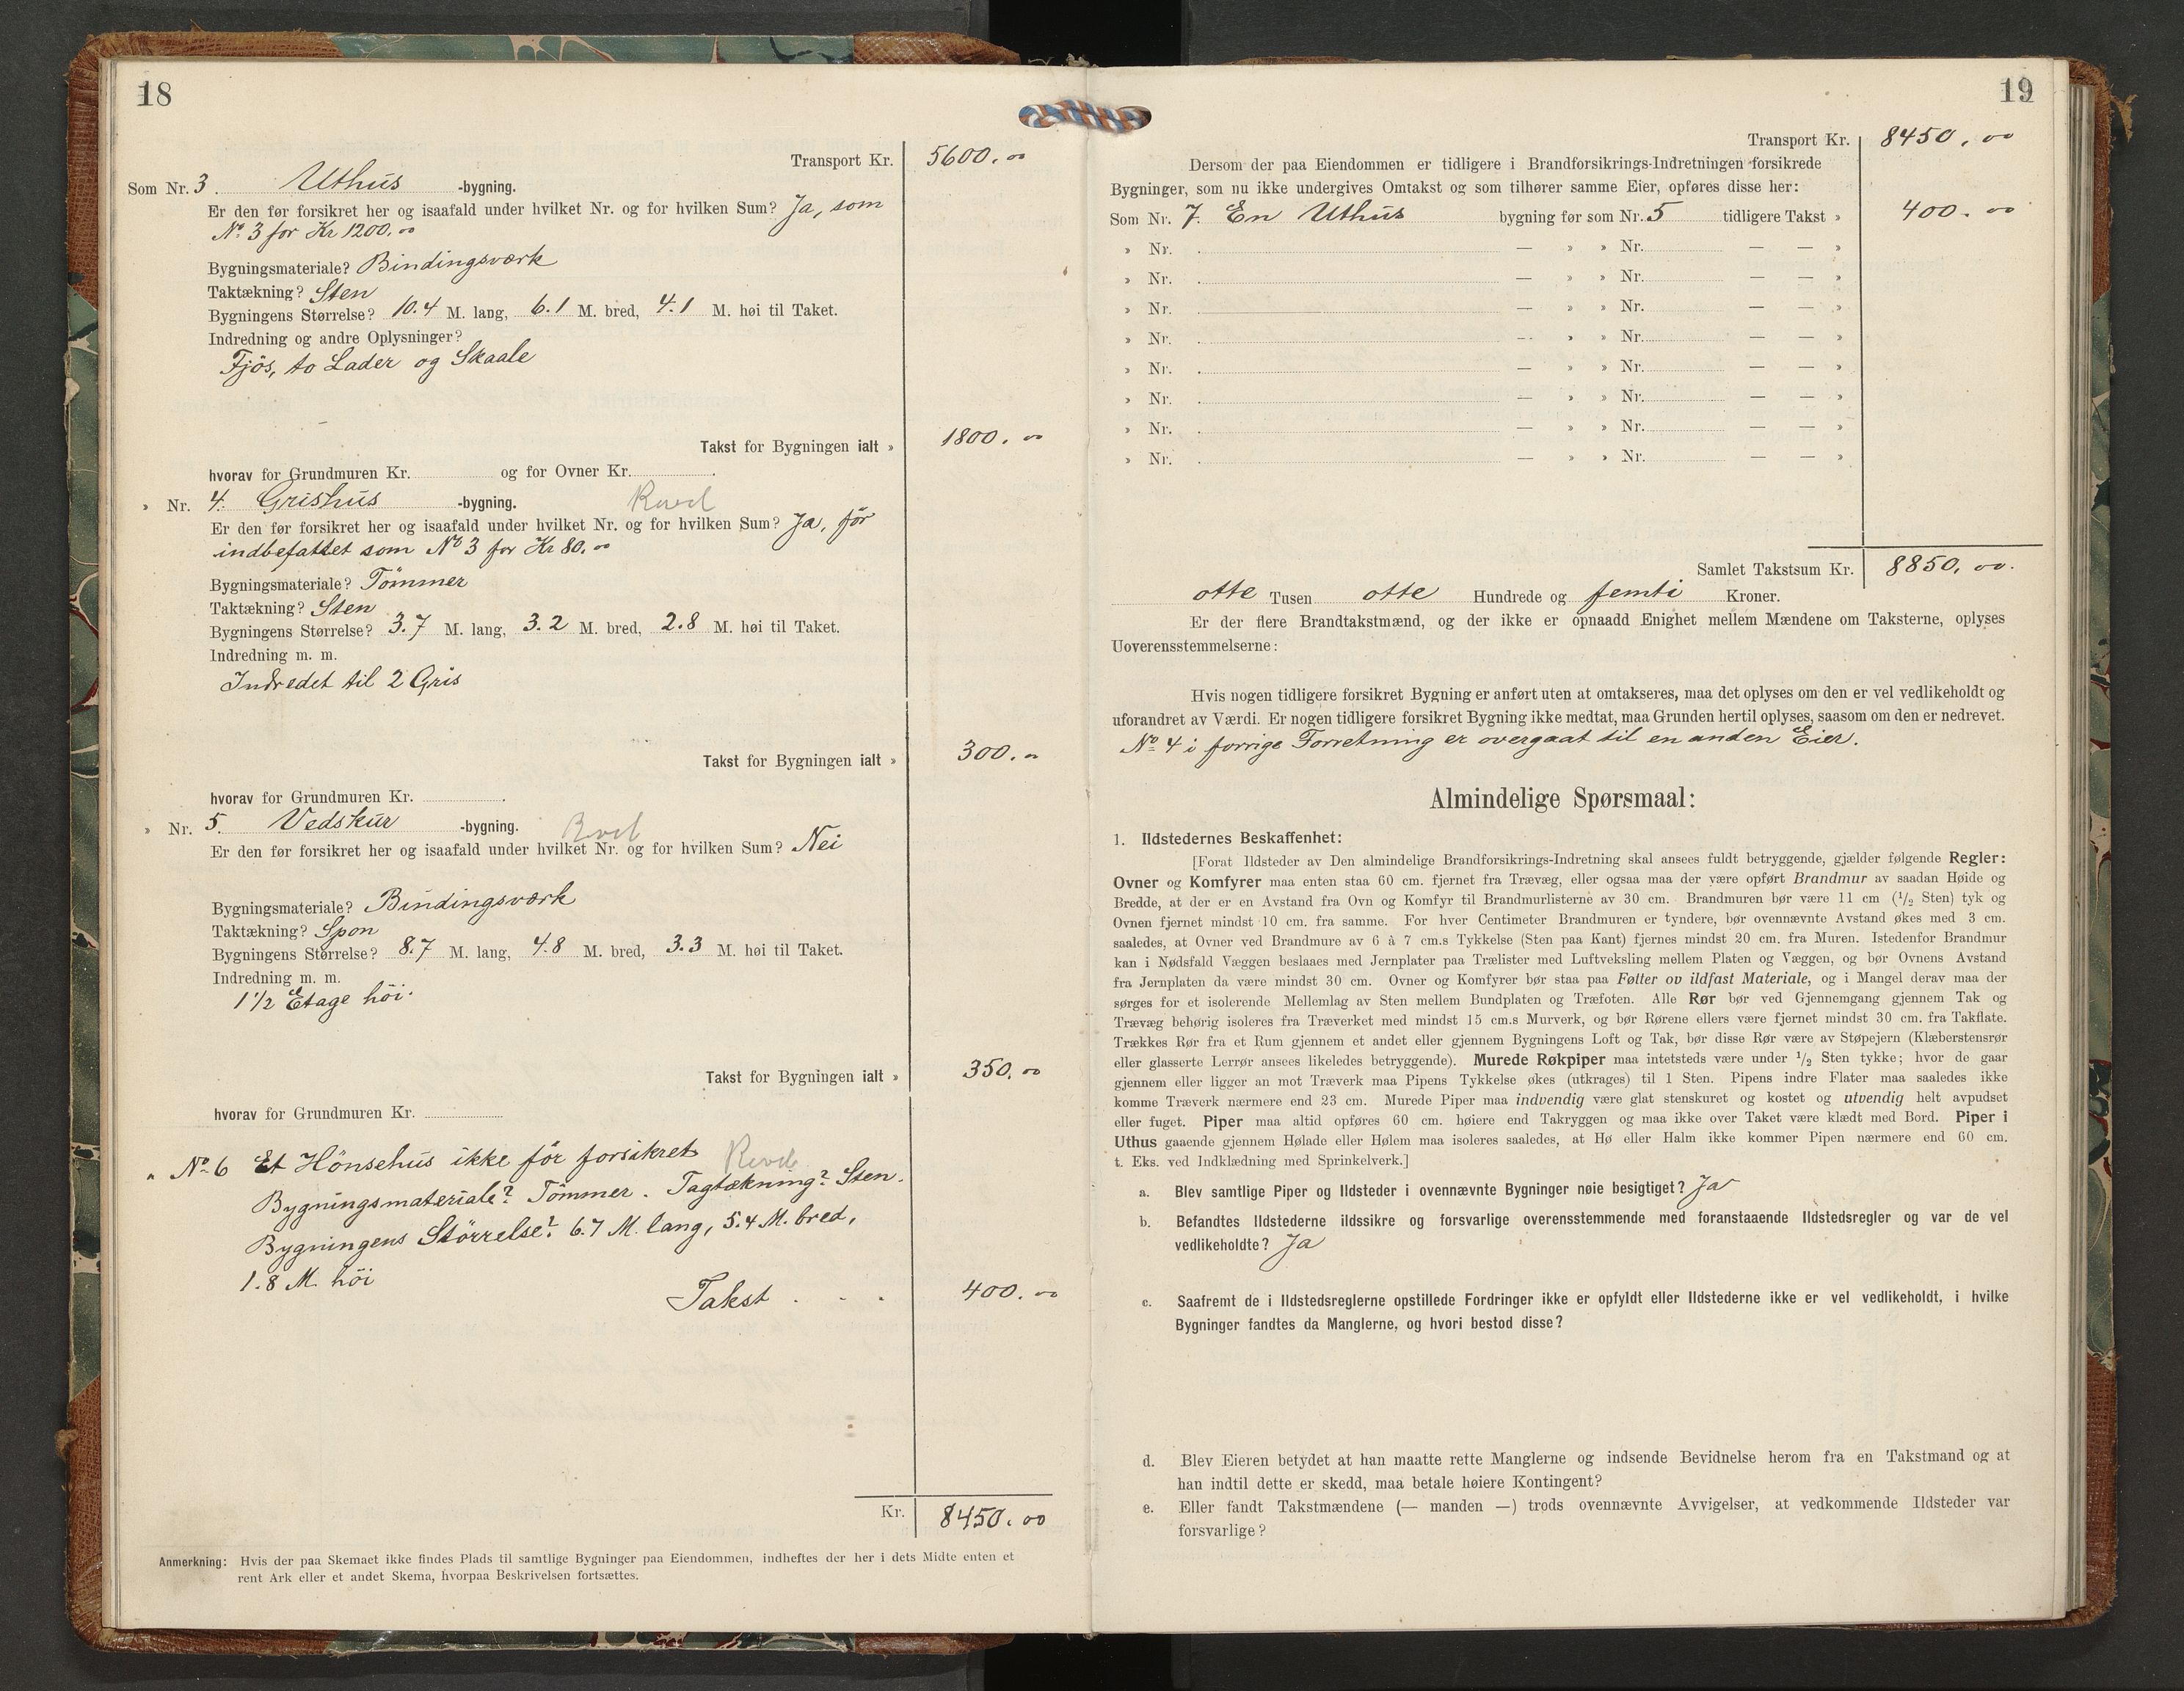 18
Transport Kr. 5600.00
Som Nr. 3. Uthus -bygning.
Er den før forsikret her og isaafald under hvilket Nr. og for hvilken Sum? Ja, som
No 3 for Kr 1200.00
Bygningsmateriale? Bindingsværk
Taktækning? Sten
Bygningens Størrelse? 10.4 M. lang, 6.1 M. bred, 4.1 M. høi til Taket.
Indredning og andre Oplysninger?
Fjös, to Lader og Skaale
Takst for Bygningen ialt » 1800.00
hvorav for Grundmuren Kr. og for Ovner Kr. .
» Nr. 4. Grishus -bygning.
Er den før forsikret her og isaafald under hvilket Nr. og for hvilken Sum? Ja, för
indbefattet som No 3 for Kr 80.00
Bygningsmateriale? Tömmer
Taktækning? Sten
Bygningens Størrelse? 3.7 M. lang, 3.2 M. bred, 2.8 M. høi til Taket.
Indredning m. m.
Indredet til 2 Gris
Takst for Bygningen ialt » 300.00
hvorav for Grundmuren Kr. .
» Nr. 5. Vedskur -bygning.
Er den før forsikret her og isaafald under hvilket Nr. og for hvilken Sum? Nei
Bygningsmateriale? Bindingsværk
Taktækning? Spon
Bygningens Størrelse? 8.7 M. lang, 4.8 M. bred, 3.3 M. høi til Taket.
Indredning m. m.
1 1/2 Etage höi.
Takst for Bygningen ialt » 350.00
hvorav for Grundmuren Kr.
" No 6 Et Hönsehus ikke för forsikret
Bygningsmateriale? Tömmer. Tagtækning? Sten.
Bygningens Störrelse? 6.7 M. lang, 5.4 M. bred,
1.8 M. höi
Takst . . . 400.00
Kr. 8450.00
Anmerkning: Hvis der paa Skemaet ikke findes Plads til samtlige Bygninger paa Eiendommen, indheftes der her i dets Midte enten et
rent Ark eller et andet Skema, hvorpaa Beskrivelsen fortsættes.
19
Transport Kr. 8450.00
Dersom der paa Eiendommen er tidligere i Brandforsikrings-Indretningen forsikrede
Bygninger, som nu ikke undergives Omtakst og som tilhører samme Eier, opføres disse her:
Som Nr. 7. En Uthus bygning før som Nr. 5 tidligere Takst » 400.00
» Nr. . — » » Nr. — — »
» Nr. . — » » Nr. — — »
» Nr. . — » » Nr. — — »
» Nr. . — » » Nr. — — »
» Nr. . — » » Nr. — — »
» Nr. . — » » Nr. — — »
» Nr. . — » » Nr. — — »
» Nr. . — » » Nr. — — »
Samlet Takstsum Kr. 8850.00.
otte Tusen otte Hundrede og femti Kroner.
Er der flere Brandtakstmænd, og der ikke er opnaadd Enighet mellem Mændene om Taksterne, oplyses
Uoverensstemmelserne:
Hvis nogen tidligere forsikret Bygning er anført uten at omtakseres, maa det oplyses om den er vel vedlikeholdt og
uforandret av Værdi. Er nogen tidligere forsikret Bygning ikke medtat, maa Grunden hertil oplyses, saasom om den er nedrevet.
No 4 i forrige Forretning er overgaat til en anden Eier.
Almindelige Spørsmaal:
1. Ildstedernes Beskaffenhet:
[Forat Ildsteder av Den almindelige Brandforsikrings-Indretning skal ansees fuldt betryggende, gjælder følgende Regler:
Ovner og Komfyrer maa enten staa 60 cm. fjernet fra Trævæg, eller ogsaa maa der være opført Brandmur av saadan Høide og
Bredde, at der er en Avstand fra Ovn og Komfyr til Brandmurlisterne av 30 cm. Brandmuren bør være 11 cm (1/2 Sten) tyk og
Ovnen fjernet mindst 10 cm. fra samme. For hver Centimeter Brandmuren er tyndere, bør ovennævnte Avstand økes med 3 cm.
saaledes, at Ovner ved Brandmure av 6 à 7 cm.s Tykkelse (Sten paa Kant) fjernes mindst 20 cm. fra Muren. Istedenfor Brandmur
kan i Nødsfald Væggen beslaaes med Jernplater paa Trælister med Luftveksling mellem Platen og Væggen, og bør Ovnens Avstand
fra Jernplaten da være mindst 30 cm. Ovner og Komfyrer bør staa paa Føtter ov ildfast Materiale, og i Mangel derav maa der
sørges for et isolerende Mellemlag av Sten mellem Bundplaten og Træfoten. Alle Rør bør ved Gjennemgang gjennem Tak og
Trævæg behørig isoleres fra Træverket med mindst 15 cm.s Murverk, og bør Rørene ellers være fjernet mindst 30 cm. fra Takflate.
Trækkes Rør fra et Rum gjennem et andet eller gjennem Bygningens Loft og Tak, bør disse Rør være av Støpejern (Klæberstensrør
eller glasserte Lerrør ansees likeledes betryggende). Murede Røkpiper maa intetsteds være under 1/2 Sten tykke; hvor de gaar
gjennem eller ligger an mot Træverk maa Pipens Tykkelse økes (utkrages) til 1 Sten. Pipens indre Flater maa saaledes ikke
komme Træverk nærmere end 23 cm. Murede Piper maa indvendig være glat stenskuret og kostet og utvendig helt avpudset
eller fuget. Piper maa altid opføres 60 cm. høiere end Takryggen og maa ikke over Taket være klædt med Bord. Piper i
Uthus gaaende gjennem Hølade eller Hølem maa isoleres saaledes, at Hø eller Halm ikke kommer Pipen nærmere end 60 cm.
t. Eks. ved Indklædning med Sprinkelverk.]
a. Blev samtlige Piper og Ildsteder i ovennævnte Bygninger nøie besigtiget? Ja
b. Befandtes Ildstederne ildssikre og forsvarlige overensstemmende med foranstaaende Ildstedsregler og var de vel
vedlikeholdte? Ja
c. Saafremt de i Ildstedsreglerne opstillede Fordringer ikke er opfyldt eller Ildstederne ikke er vel vedlikeholdt, i hvilke
Bygninger fandtes da Manglerne, og hvori bestod disse?
d. Blev Eieren betydet at han maatte rette Manglerne og indsende Bevidnelse herom fra en Takstmand og at
han indtil dette er skedd, maa betale høiere Kontingent?
e. Eller fandt Takstmændene (— manden —) trods ovennævnte Avvigelser, at vedkommende Ildsteder var
forsvarlige?